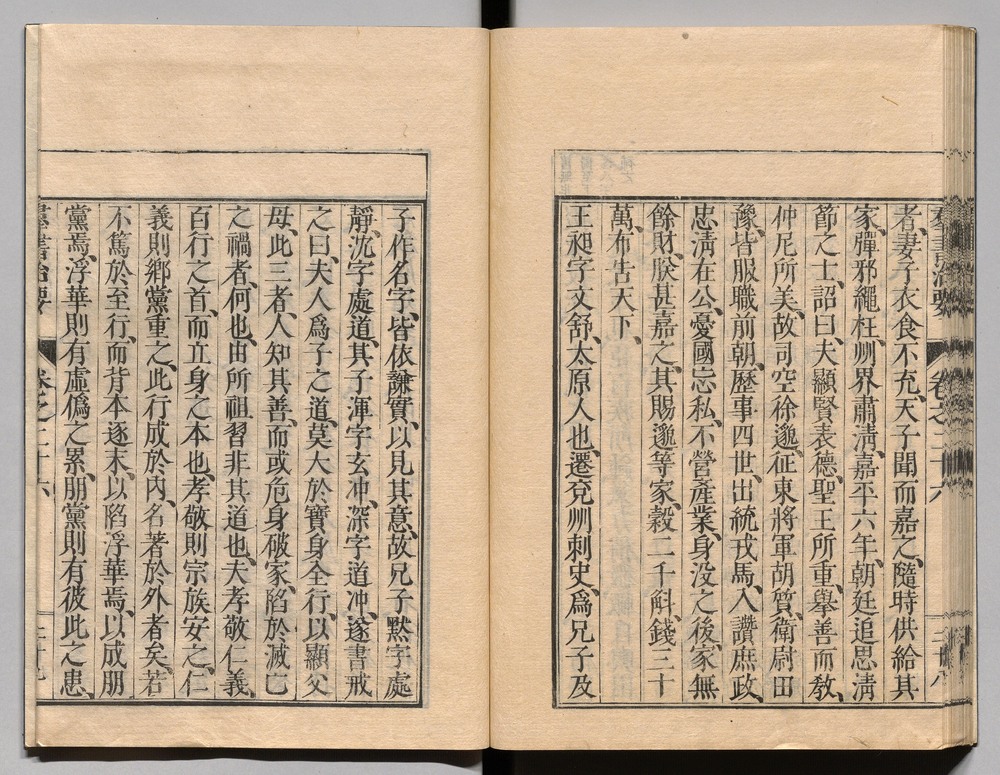 羣書治要 卷之二十六 二十八
者、妻子衣食不充、天子聞而嘉之、隨時供給其
家、彈邪繩枉、州界肅淸、嘉平六年、朝廷追思淸
節之士、詔曰、夫顯賢表德、聖王所重、舉善而敎、
仲尼所美、故司空徐邈、征東將軍胡質、衛尉田
豫、皆服職前朝、歷事四世、出統戎馬、入讚庶政、
忠淸在公、憂國忘私、不營產業、身沒之後、家無
餘財、朕甚嘉之、其賜邈等家、穀二千斛、錢三十
萬、布告天下、
王昶字文舒、太原人也、遷兗州刺史、爲兄子及
子作名字、皆依謙實、以見其意、故兄子默字處
靜、沈字處道、其子渾字玄冲、深字道冲、遂書戒
之曰、夫人爲子之道、莫大於寶身全行、以顯父
母、此三者、人知其善、而或危身破家、陷於滅亡
之禍者、何也、由所祖習非其道也、夫孝敬仁義、
百行之首、而立身之本也、孝敬則宗族安之、仁
義則鄕黨重之、此行成於內、名著於外者矣、若
不篤於至行、而背本逐末、以陷浮華焉、以成朋
黨焉、浮華則有虛僞之累、朋黨則有彼此之患、
羣書治要 卷之二十六 二十九